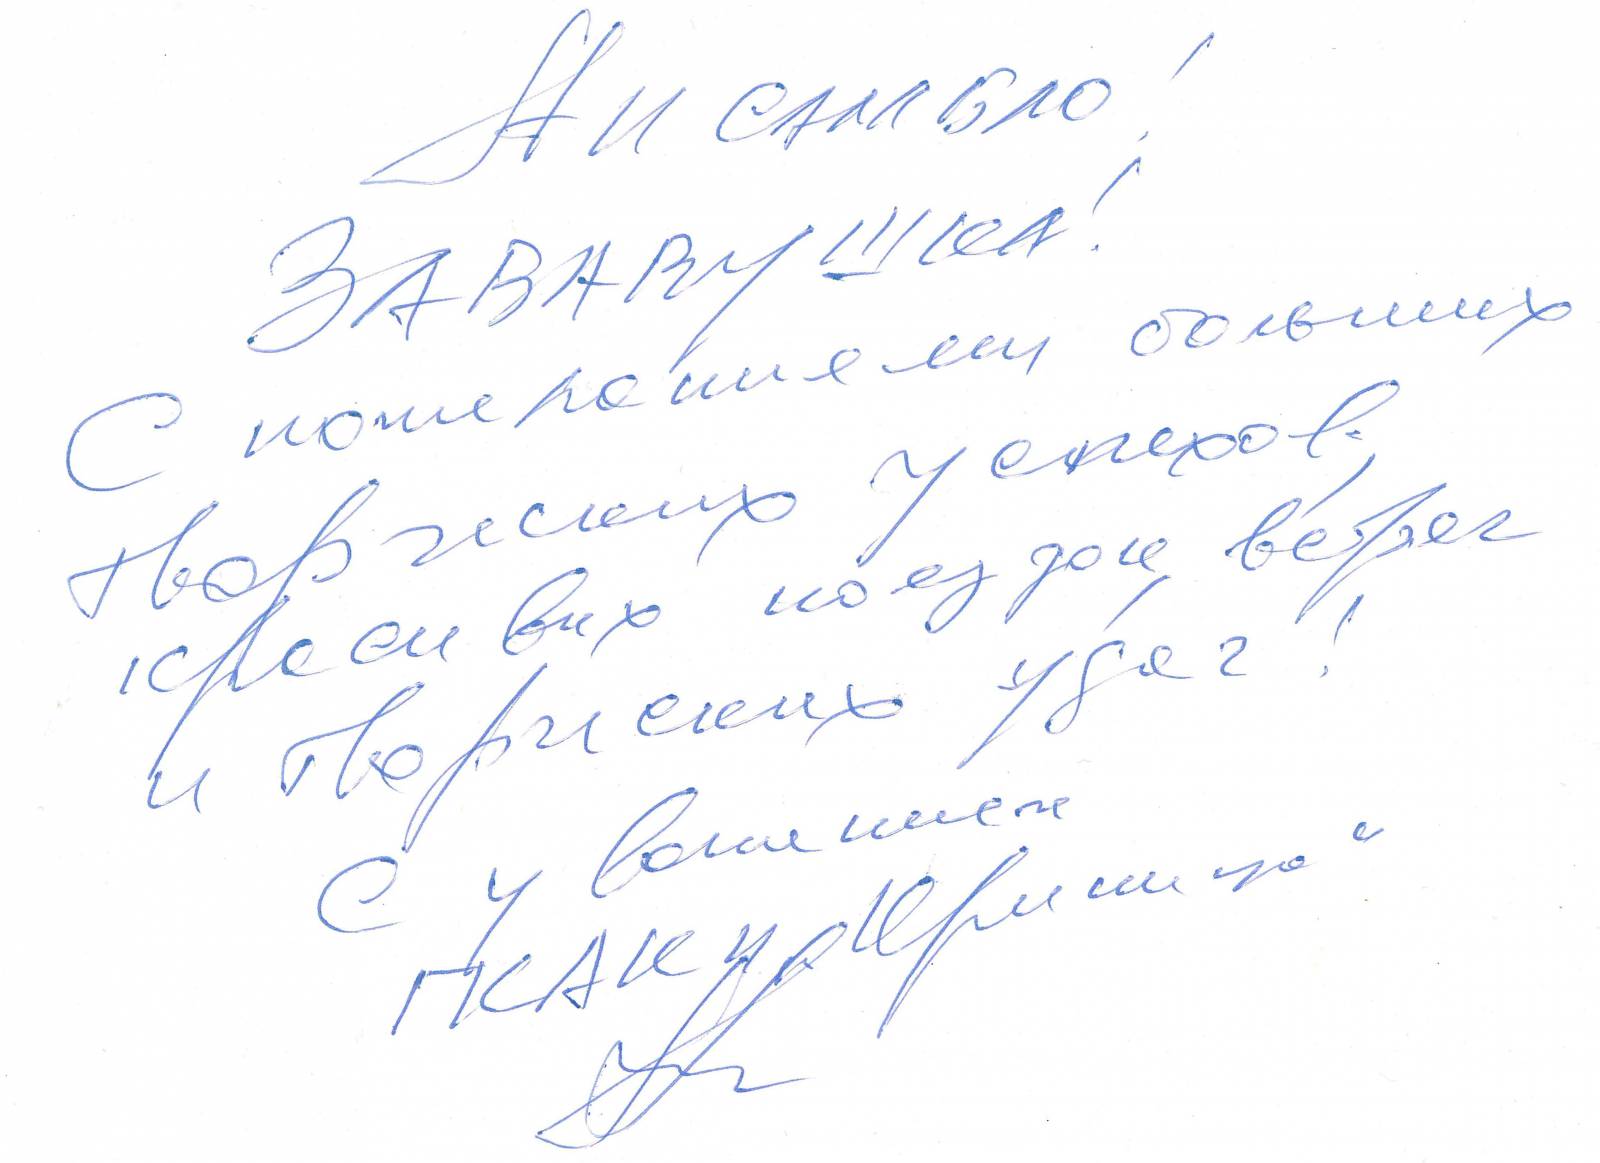 Ансамблю!
ЗАВАРУШКА!
С пожеланиями больших
творческих успехов.
красивых поездок встреч
и творческих удач!
С уважением
ГКАНП „Криница“